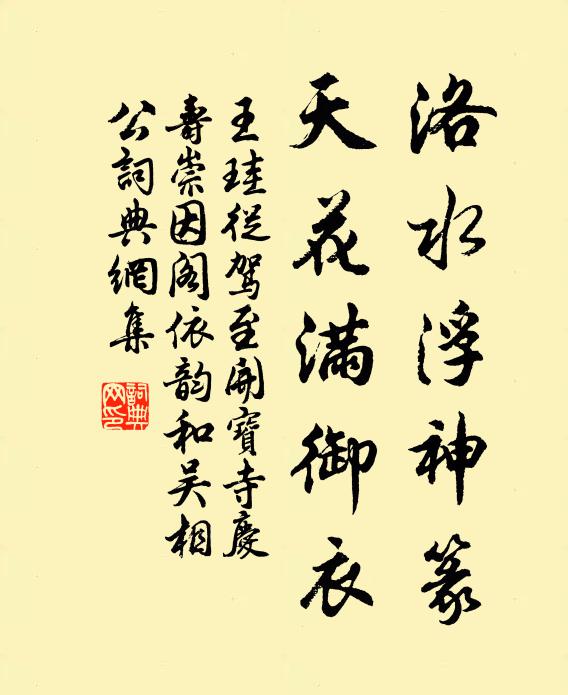 洛水浮神篆
天花滿御衣
王珪從駕至開寶寺慶
壽崇因閣依韵和吴相
公詞典網集
詞典
网印